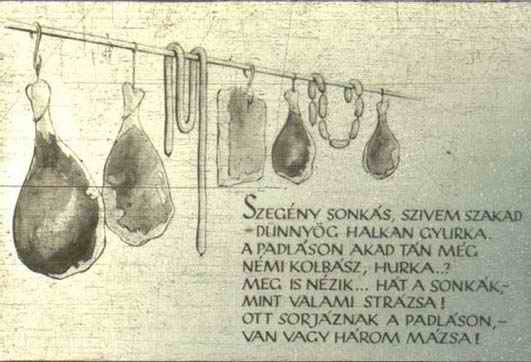 SZEGÉNY SONKÁS, SZIVEM SZAKAD
–DÜNNYÖG HALKAN GYURKA.
A PADLÁSON AKAD TÁN MÉG
NÉMI KOLBÁSZ, HURKA..?
MEG IS NÉZIK... HÁT A SONKÁK,–
MINT VALAMI STRÁZSA!
OTT SORJÁZNAK A PADLÁSON,–
VAN VAGY HÁROM MÁZSA!